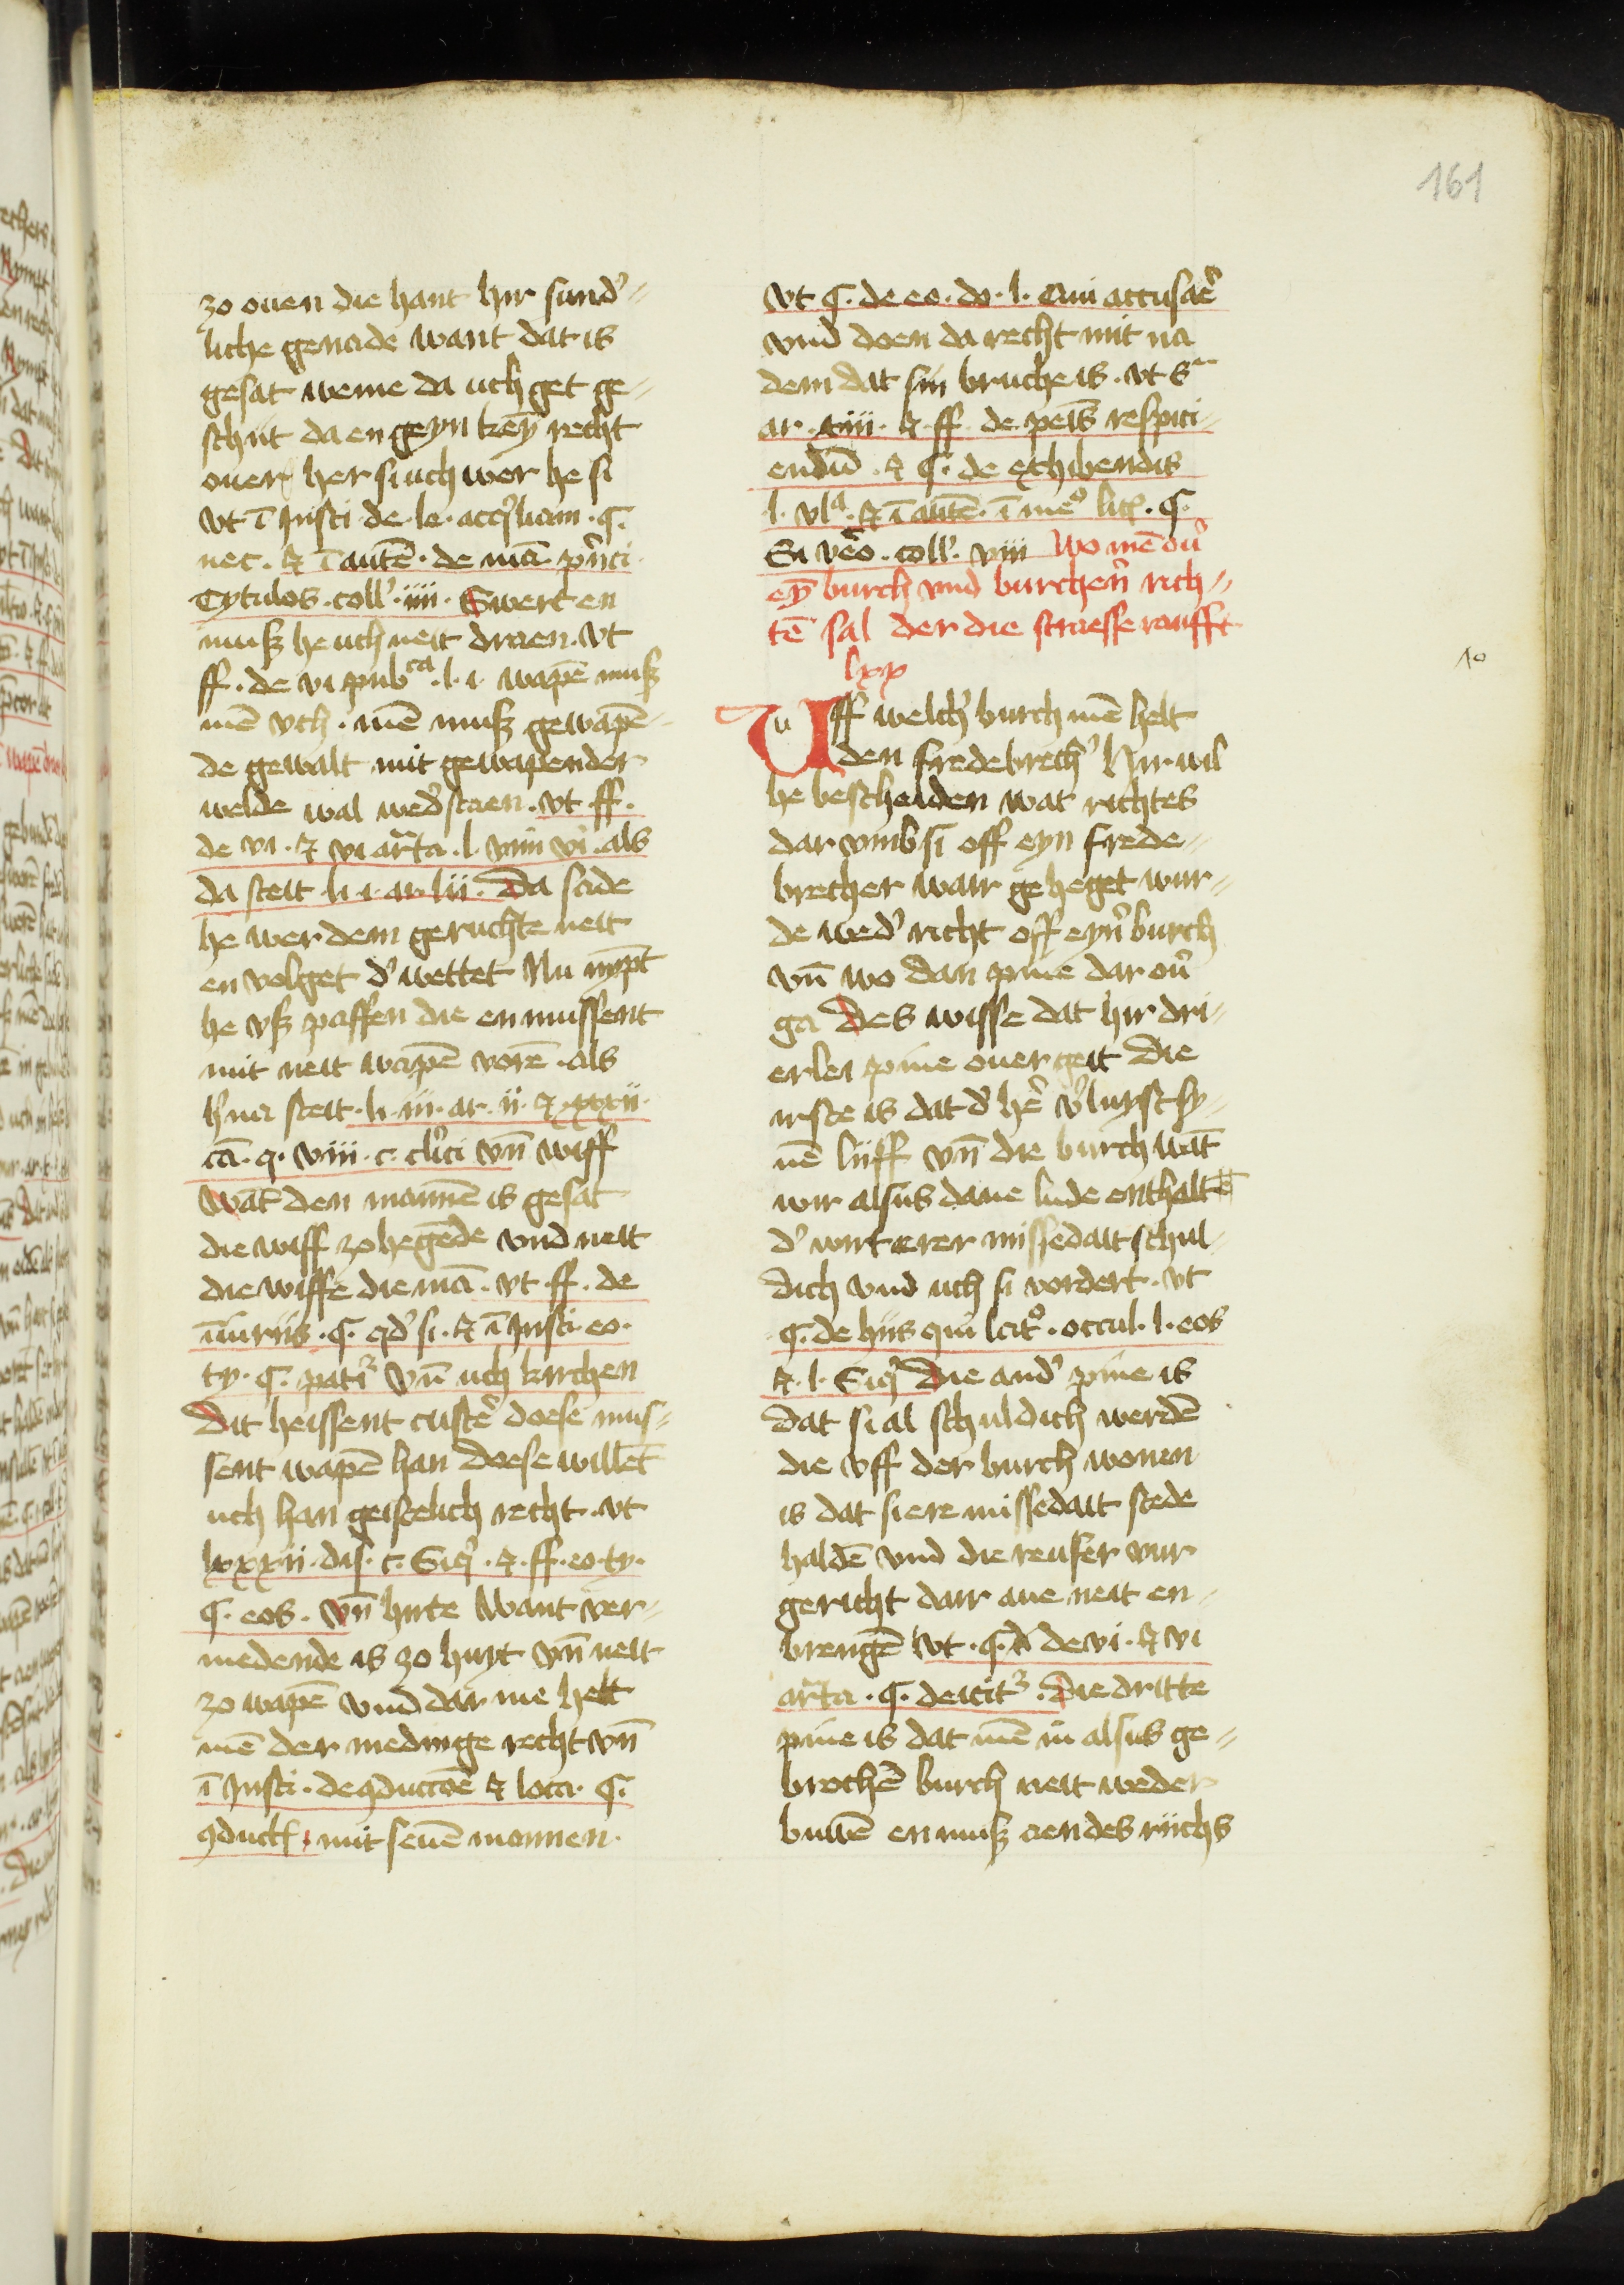 161
zo ouen die hant hir sund'
liche genade want dat is
gesat weme da uch get ge-
schut da en geyn key recht
ouer her si uch wer he si
vt ī Insti de le. acq'liam . q.
nec . et ī autē . de mā. p'nci
Tytulos . coll' . iiii . Swert en
muß he uch neit draen . vt
ff . de vi pub^ca . l . i . wapē muß
mē vch . mē muß gewapē-
de gewalt mit gewapender
welde wal wed' staen . vt ff .
de vi . et vi ar̄ta . l . vim vi . als
da steit . li . i . ar . lii . Da sade
he wer dem geruchte neit
en volget d' wettet Nu nypt
he vß paffen die en mussent
mit neit wapē vorē . als
h'na steit . li . iii . ar . ii . et xxxii
ca . q . viii . c . cl'ici vn̄ wiff
Wat den mannē is gesat
die wiff zo hegēde vnd neit
die wiffe die mā . vt ff . de
iniuriis . q . qd' si . et ī Insti . eo .
ty . q . pati' vn̄ uch kirchen
Dit heissent custē' doese mus-
sent wapē han doese willēt
uch han geistelich recht . vt
lxxxii . dis . c . Siq' . et . ff . eo . ty .
q . eos . vn̄ hirte Want ver-
medende is zo huyt vn̄ neit
zo wapē vnd dar me helt
mē der medinge recht vn̄
ī Insti . de 9ductōe et loca . q .
9duct . mit seuē mannen .
vt q . de eo . do . l . Qui accusāe'
vnd doen da recht mit na
dem dat sin bruche is . vt s^a
ar . iiii . et . ff . de peīs respici-
endū . et q . de exhibendis
l . vl^a . et ī autē . ī me^o lit . q .
Si vēo . coll' . viii Wo mē ou'
eȳ burch vnd burchen' rich-
tē sal der die straesse roufft
lxx
Uff welch' burch mē helt
den fredebrech' Hir wil
he bescheiden wat richtes
dar vmb si off eyn frede-
brecher wair geheget wur-
de wed' richt off eyn' burch
vn̄ wo dan pine dar ou'
ga Des wisse dat hir dri-
erlei pine ouer geit Die
irste is dat d' hē' v'luyst sy-
nē liiff vn̄ die burch wāt
wir alsus dane lude enthaltē
d' wirt erer missedait schul-
dich vnd uch si vordert . vt
q . de hiis qui lat^o . occul . l . eos
et . l . Siq' Die and' pine is
dat si al schuldich werdē
die vff der burch wonen
is dat si ere missedait stede
haldē vnd die reufer vur
gericht dair aue neit en-
brengē vt . q . d' de vi . et vi
ar̄ta . q . deicit' . Die dritte
pine is dat mē in alsus ge-
brochē burch neit weder
buwē en muß aen des riichs
10